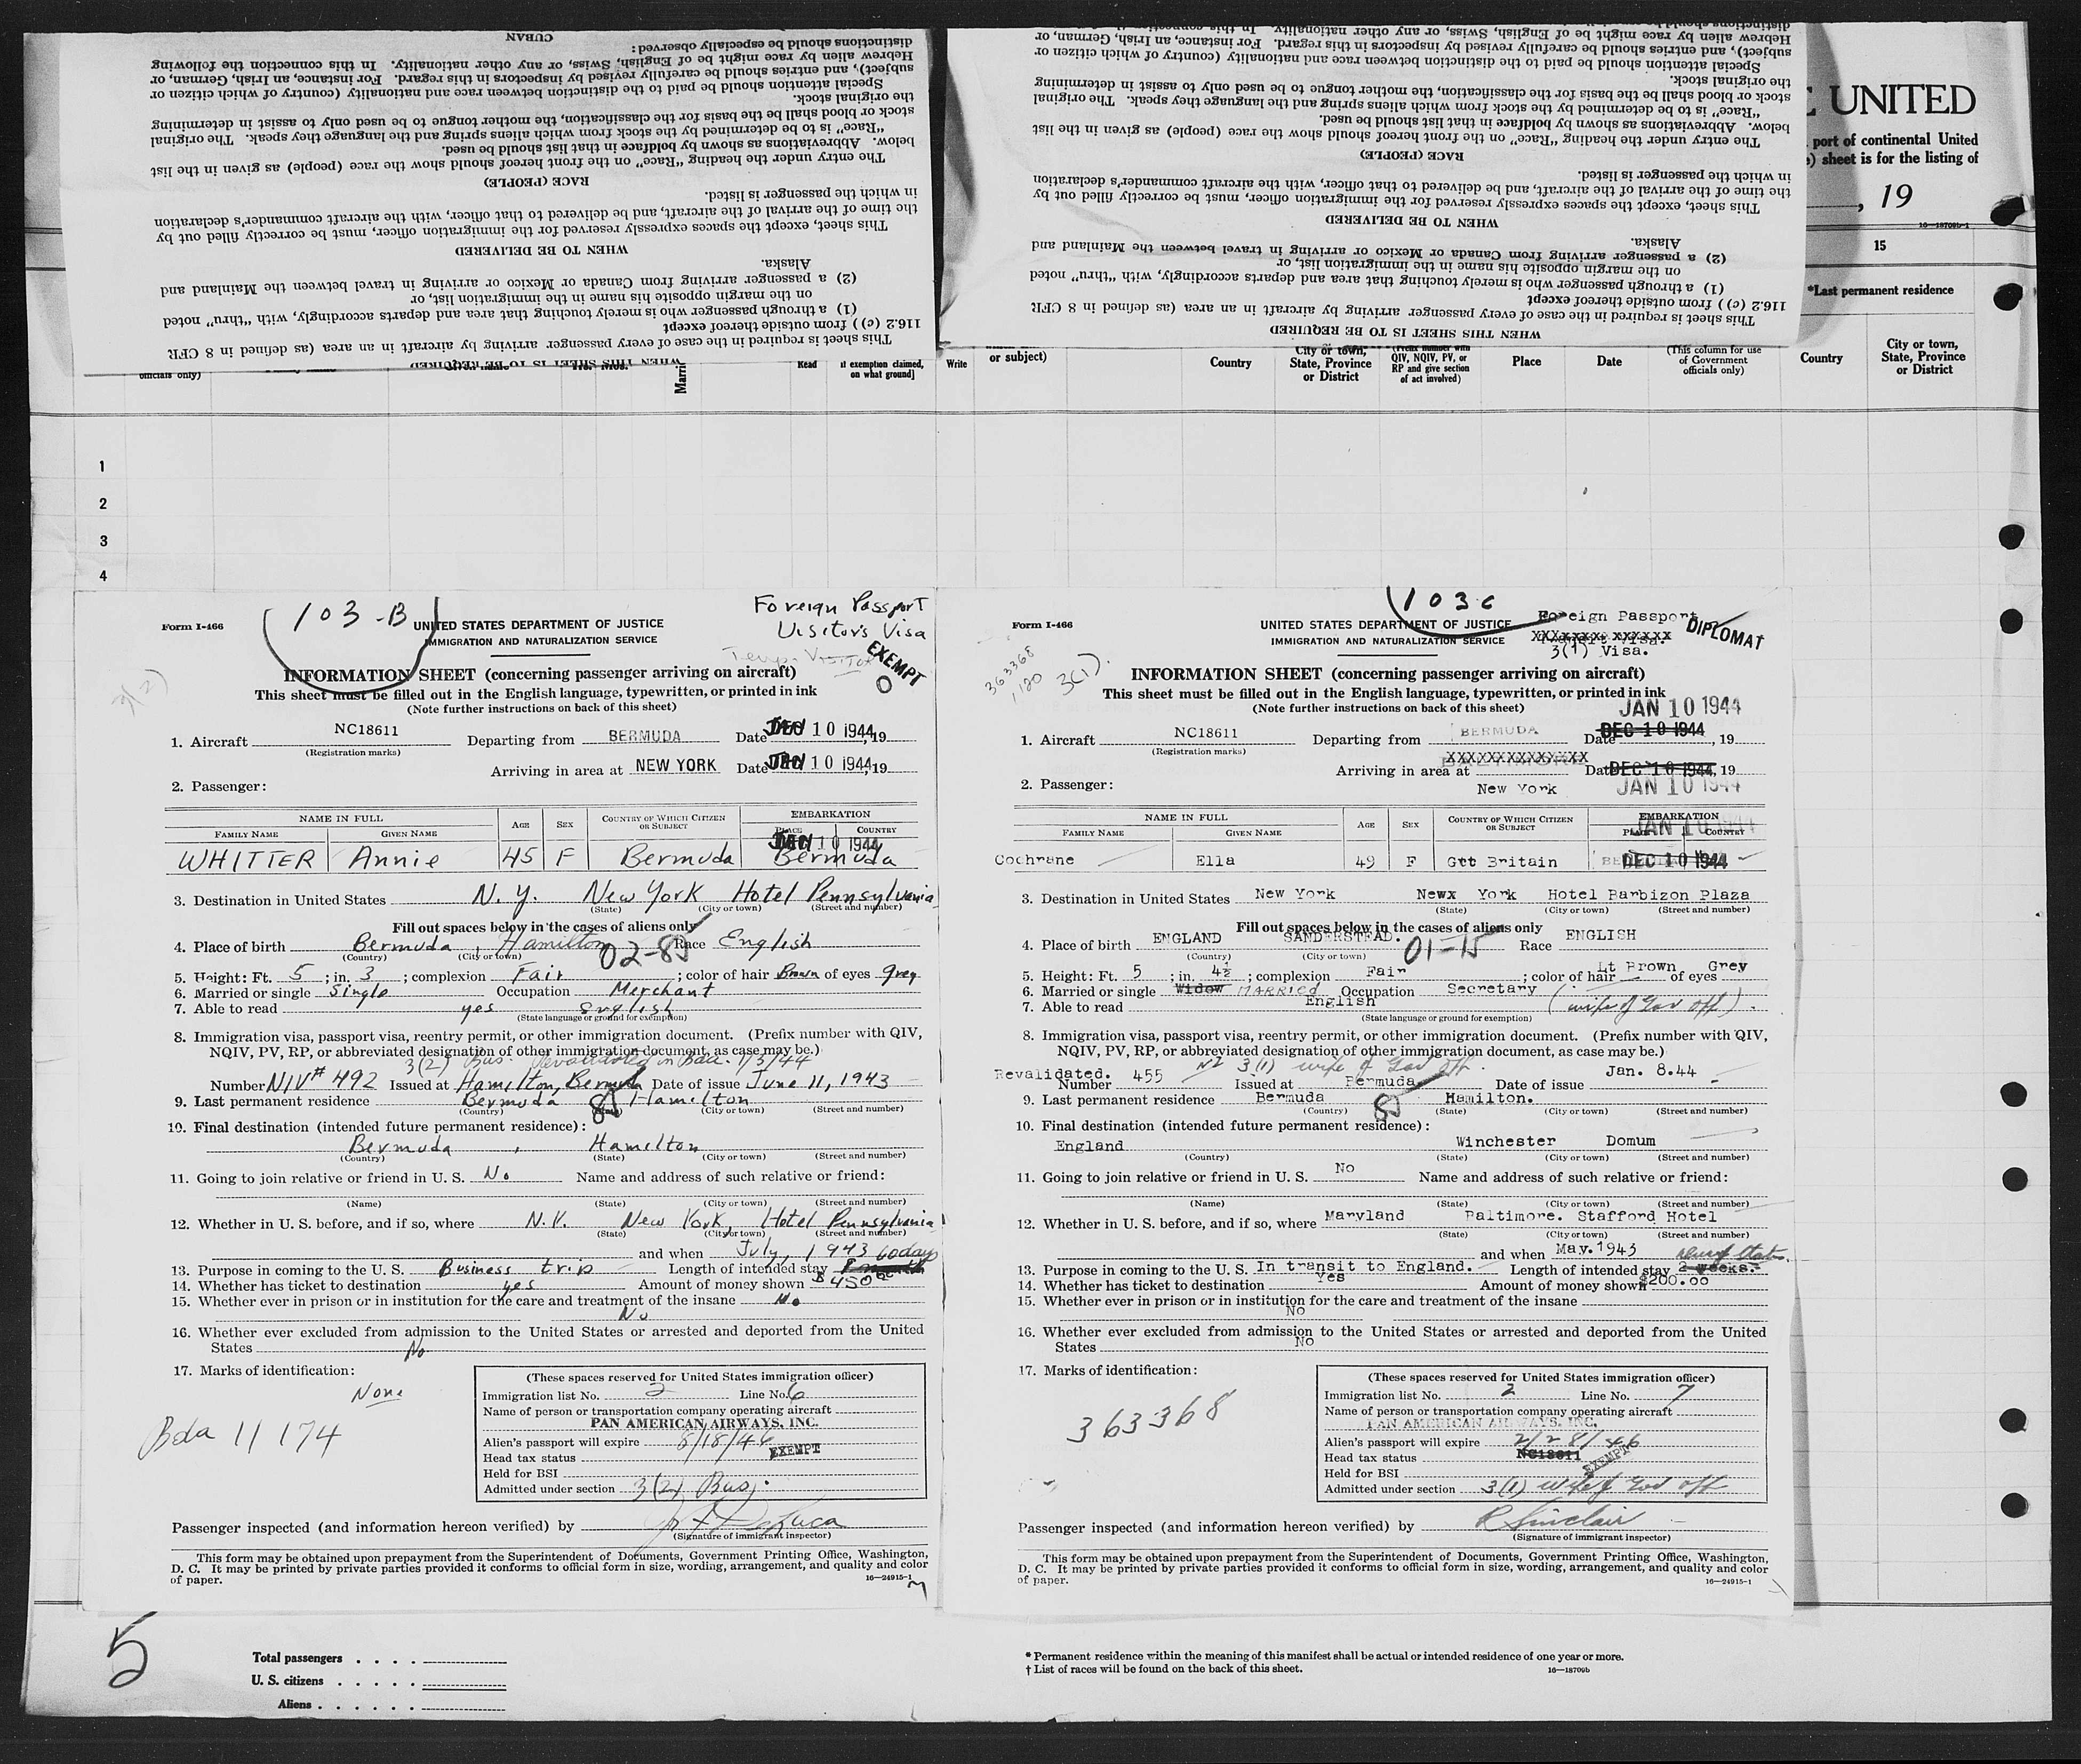 CUBAN
distinctions should be especially observed:
Hebrew alien by race might be of English, Swiss, or any other nationality. In this connection the following
subject), and entries should be carefully revised by inspectors in this regard. For instance, an Irish, German, or
Special attention should be paid to the distinction between race and nationality (country of which citizen or
the original stock.
stock or blood shall be the basis for the classification, the mother tongue to be used only to assist in determining
"Race" is to be determined by the stock from which aliens spring and the language they speak. The original
below. Abbreviations as shown by boldface in that list should be used.
The entry under the heading "Race" on the front hereof should show the race (people) as given in the list
RACE (PEOPLE)
in which the passenger is listed.
the time of the arrival of the aircraft, and be delivered to that officer, with the aircraft commander's declaration
This sheet, except the spaces expressly reserved for the immigration officer, must be correctly filled out by
WHEN TO BE DELIVERED
Alaska.
(2) a passenger arriving from Canada or Mexico or arriving in travel between the Mainland and
on the margin opposite his name in the immigration list, or
(1) a through passenger who is merely touching that area and departs accordingly, with "thru" noted
116.2 (c) ) from outside thereof except
This sheet is required in the case of every passenger arriving by aircraft in an area (as defined in 8 CFR
WHEN THIS SHEET IS TO BE REQUIRED
distinctions should be
Hebrew alien by race might be of English, Swiss, or any other nationality. In this
subject), and entries should be carefully revised by inspectors in this regard. For instance, an Irish, German, or
Special attention should be paid to the distinction between race and nationality (country of which citizen or
the original stock.
stock or blood shall be the basis for the classification, the mother tongue to be used only to assist in determining
"Race" is to be determined by the stock from which aliens spring and the language they speak. The original
below. Abbreviations as shown by boldface in that list should be used.
The entry under the heading "Race" on the front hereof should show the race (people) as given in the list
RACE (PEOPLE)
in which the passenger is listed.
the time of the arrival of the aircraft, and be delivered to that officer, with the aircraft commander's declaration
This sheet, except the spaces expressly reserved for the immigration officer, must be correctly filled out by
WHEN TO BE DELIVERED
Alaska.
(2) a passenger arriving from Canada or Mexico or arriving in travel between the Mainland and
on the margin opposite his name in the immigration list, or
(1) a through passenger who is merely touching that area and departs accordingly, with "thru" noted
116.2 (c) ) from outside thereof except
This sheet is required in the case of every passenger arriving by aircraft in an area (as defined in 8 CFR
WHEN THIS SHEET IS TO BE REQUIRED
UNITED
port of continental United
sheet is for the listing of
, 19
16—18709b-1
15
*Last permanent residence
officials only)
Read
if exemption claimed,
on what ground]
Write
or subject)
Country
City or town,
State, Province
or District
(Prefix number with
QIV, NQIV, PV, or
RP and give section
of act involved)
Place
Date
(This column for use
of Government
officials only)
Country
City or town,
State, Province
or District
1
2
3
4
103-B
Foreign Passport
Visitors Visa
Form I-466
UNITED STATES DEPARTMENT OF JUSTICE
IMMIGRATION AND NATURALIZATION SERVICE
Temp. Visitor
EXEMPT
0
3(2)
INFORMATION SHEET (concerning passenger arriving on aircraft)
This sheet must be filled out in the English language, typewritten, or printed in ink
(Note further instructions on back of this sheet)
1. Aircraft NC18611 Departing from BERMUDA Date JAN 10 1944, 19
(Registration marks)
Arriving in area at NEW YORK Date JAN 10 1944, 19
2. Passenger:
NAME IN FULL
FAMILY NAME
GIVEN NAME
AGE
SEX
COUNTRY OF WHICH CITIZEN
OR SUBJECT
EMBARKATION
PLACE
COUNTRY
JAN 10 1944
WHITTER Annie 45 F Bermuda Bermuda
3. Destination in United States N.Y. New York Hotel Pennsylvania
(State) (City or town) (Street and number)
Fill out spaces below in the cases of aliens only
4. Place of birth Bermuda, Hamilton 02-85 Race English
(Country) (City or town)
5. Height: Ft. 5 ; in. 3 ; complexion Fair ; color of hair Brown of eyes grey
6. Married or single Single Occupation Merchant
7. Able to read yes English
(State language or ground for exemption)
8. Immigration visa, passport visa, reentry permit, or other immigration document. (Prefix number with QIV,
NQIV, PV, RP, or abbreviated designation of other immigration document, as case may be.)
3(2) Bus. Revalidated in Bda. 1/3/44
Number NIV# 492 Issued at Hamilton, Bermuda Date of issue June 11, 1943
9. Last permanent residence Bermuda 85 Hamilton
(Country) (State) (City or town) (Street and number)
10. Final destination (intended future permanent residence):
Bermuda , Hamilton
(Country) (State) (City or town) (Street and number)
11. Going to join relative or friend in U. S. No Name and address of such relative or friend:
(Name) (State) (City or town) (Street and number)
12. Whether in U. S. before, and if so, where N.Y. New York, Hotel Pennsylvania
(State) (City or town) (Street and number)
and when July, 1943 60 days
13. Purpose in coming to the U. S. Business trip Length of intended stay
14. Whether has ticket to destination yes Amount of money shown $450.00
15. Whether ever in prison or in institution for the care and treatment of the insane No
No
16. Whether ever excluded from admission to the United States or arrested and deported from the United
States No
17. Marks of identification:
None
Bda 11174
(These spaces reserved for United States immigration officer)
Immigration list No. 2 Line No. 6
Name of person or transportation company operating aircraft
PAN AMERICAN AIRWAYS, INC.
Alien's passport will expire 8/18/46
Head tax status EXEMPT
Held for BSI
Admitted under section 3(2) Bus.
Passenger inspected (and information hereon verified) by
(Signature of immigrant inspector)
This form may be obtained upon prepayment from the Superintendent of Documents, Government Printing Office, Washington,
D. C. It may be printed by private parties provided it conforms to official form in size, wording, arrangement, and quality and color
of paper.
16—24915-1
103c
Foreign Passport
3(1) Visa.
DIPLOMAT
Form I-466
UNITED STATES DEPARTMENT OF JUSTICE
IMMIGRATION AND NATURALIZATION SERVICE
363368
,120
3(1).
INFORMATION SHEET (concerning passenger arriving on aircraft)
This sheet must be filled out in the English language, typewritten, or printed in ink
(Note further instructions on back of this sheet)
JAN 10 1944
1. Aircraft NC18611 Departing from BERMUDA Date DEC 10 1944, 19
(Registration marks)
XXXXXXXXXXXXXX
Arriving in area at New York Date DEC 10 1944, 19
JAN 10 1944
2. Passenger:
NAME IN FULL
FAMILY NAME
GIVEN NAME
AGE
SEX
COUNTRY OF WHICH CITIZEN
OR SUBJECT
EMBARKATION
PLACE
COUNTRY
JAN 10 1944
Cochrane Ella 49 F Gtt Britain DEC 10 1944
3. Destination in United States New York Newx York Hotel Barbizon Plaza
(State) (City or town) (Street and number)
Fill out spaces below in the cases of aliens only
4. Place of birth ENGLAND SANDERSTEAD. 01-15 Race ENGLISH
(Country) (City or town)
5. Height: Ft. 5 ; in. 4½ ; complexion Fair ; color of hair Lt Brown of eyes Grey
6. Married or single Widow MARRIED Occupation Secretary (wife of Gov off).
7. Able to read English
(State language or ground for exemption)
8. Immigration visa, passport visa, reentry permit, or other immigration document. (Prefix number with QIV,
NQIV, PV, RP, or abbreviated designation of other immigration document, as case may be.)
3(1) wife of Gov off.
Revalidated.
Number 455 Issued at Bermuda Date of issue Jan. 8.44
9. Last permanent residence Bermuda 85 Hamilton.
(Country) (State) (City or town) (Street and number)
10. Final destination (intended future permanent residence):
England Winchester Domum
(Country) (State) (City or town) (Street and number)
11. Going to join relative or friend in U. S. No Name and address of such relative or friend:
(Name) (State) (City or town) (Street and number)
12. Whether in U. S. before, and if so, where Maryland Baltimore. Stafford Hotel
(State) (City or town) (Street and number)
and when May.1943
13. Purpose in coming to the U. S. In transit to England. Length of intended stay 2 weeks.
14. Whether has ticket to destination Yes Amount of money shown $200.00
15. Whether ever in prison or in institution for the care and treatment of the insane
No
16. Whether ever excluded from admission to the United States or arrested and deported from the United
States No
17. Marks of identification:
363368
(These spaces reserved for United States immigration officer)
Immigration list No. 2 Line No. 7
Name of person or transportation company operating aircraft
PAN AMERICAN AIRWAYS, INC.
Alien's passport will expire 2/28/46
Head tax status NC18611 EXEMPT
Held for BSI
Admitted under section 3(1) wife of Gov off
Passenger inspected (and information hereon verified) by R Sinclair
(Signature of immigrant inspector)
This form may be obtained upon prepayment from the Superintendent of Documents, Government Printing Office, Washington,
D. C. It may be printed by private parties provided it conforms to official form in size, wording, arrangement, and quality and color
of paper.
16—24915-1
5
Total passengers . . . .
U. S. citizens . . . . .
Aliens . . . . . .
* Permanent residence within the meaning of this manifest shall be actual or intended residence of one year or more.
† List of races will be found on the back of this sheet.
16—18709b